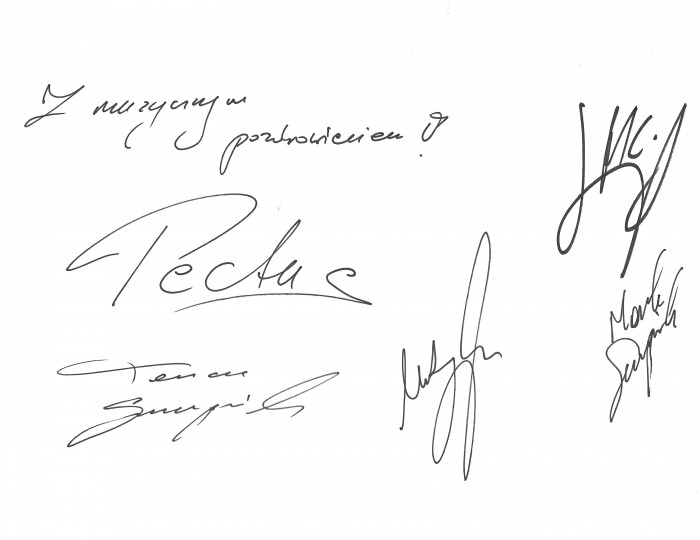 Z muzycznym
pozdrowieniem!
Pectus
Tomasz
Szczepanik
Marek
Szczepanik